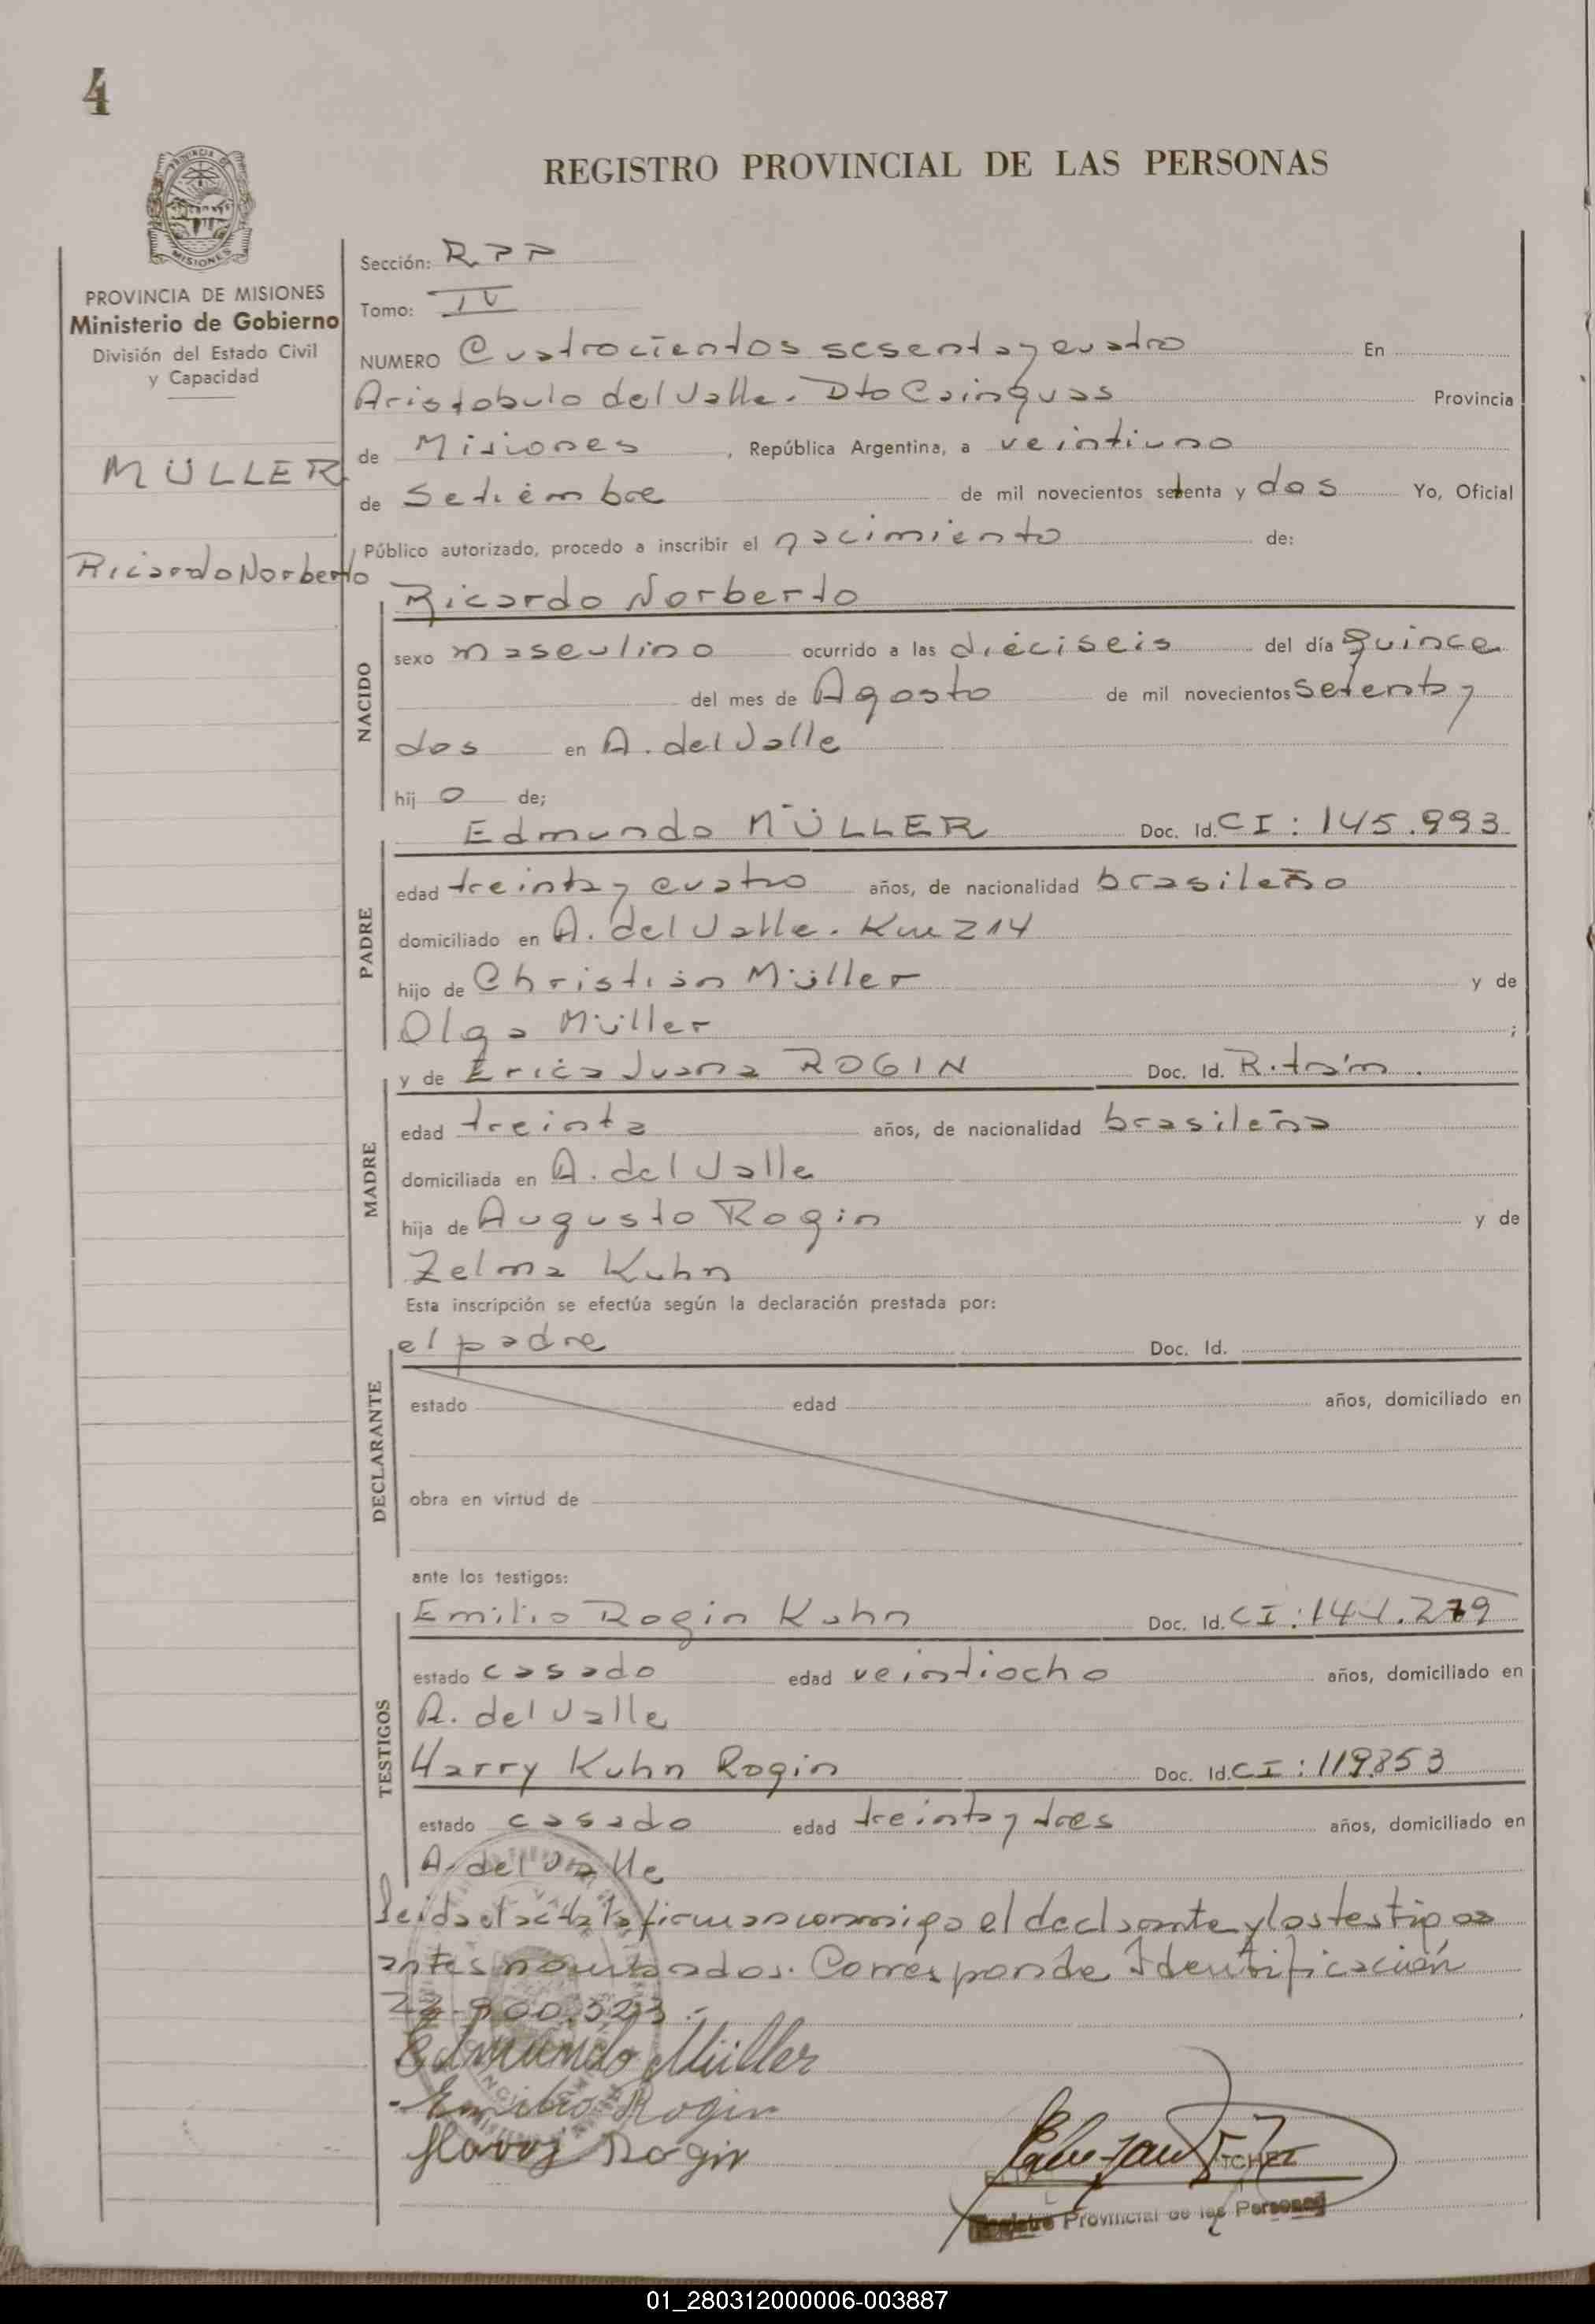 4
REGISTRO PROVINCIAL DE LAS PERSONAS
PROVINCIA DE
MISIONES
PROVINCIA DE MISIONES
Ministerio de Gobierno
División del Estado Civil
y Capacidad
MÜLLER
Ricardo Norberto
Sección: R.P.P
Tomo: IV
NUMERO Cuatrocientos sesenta y cuatro En
Aristobulo del Valle. Dto Cainguas Provincia
de Misiones, República Argentina, a veintiuno
de Setiembre de mil novecientos setenta y dos Yo, Oficial
Público autorizado, procedo a inscribir el nacimiento de:
NACIDO
Ricardo Norberto
sexo masculino ocurrido a las dieciseis del día quince
del mes de Agosto de mil novecientos setenta y
dos en A. del Valle
hij o de;
PADRE
Edmundo MÜLLER Doc. Id. CI: 145.993
edad treinta y cuatro años, de nacionalidad brasileño
domiciliado en A. del Valle. Km 214
hijo de Christian Müller y de
Olga Müller ;
MADRE
y de Erica Juana ROGIN Doc. Id. R. trám.
edad treinta años, de nacionalidad brasileña
domiciliada en A. del Valle
hija de Augusto Rogin y de
Zelma Kuhn
Esta inscripción se efectúa según la declaración prestada por:
DECLARANTE
el padre Doc. Id.
estado edad años, domiciliado en
obra en virtud de
ante los testigos:
TESTIGOS
Emilio Rogin Kuhn Doc. Id. CI: 141.279
estado casado edad veintiocho años, domiciliado en
A. del Valle
Harry Kuhn Rogin Doc. Id. CI: 119.853
estado casado edad treinta y tres años, domiciliado en
A. del Valle
Leida el acta la firman conmigo el declarante y los testigos
antes nombrados. Corresponde Identificación
22.900.323.-
Edmundo Müller
Emilio Rogin
Harry Rogin
Registro Provincial de las Personas
01_280312000006-003887